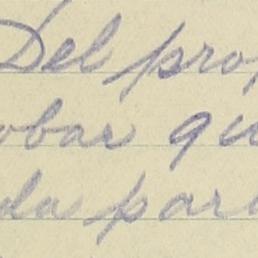 Del pro
obar qu
da par